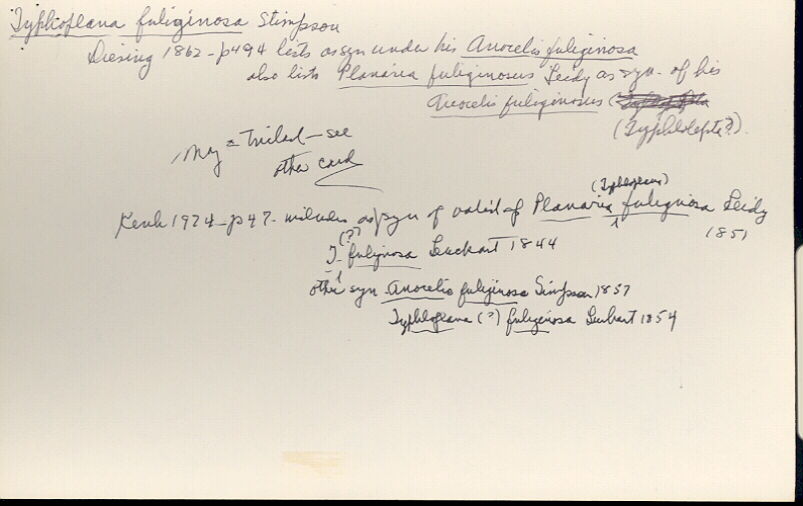 Typhloplana fuliginosa Stimpson
Diesing 1862 - p494 lists as syn under his Anocelis fuliginosa
also lists Planaria fuliginosus Leidy as syn. of his
Anocelis fuliginosus
(Typhlolepta?).
May = Triclad - see
other card
(Typhloplana)
Kenk 1974 - p47. includes as syn of valid sp Planaria ^ fuliginosa Leidy
1851
(?)
T. ^ fuliginosa Leuckart 1844
other syn Anocelis fuliginosa Stimpson 1857
Typhloplana (?) fuliginosa Leuckart 1854